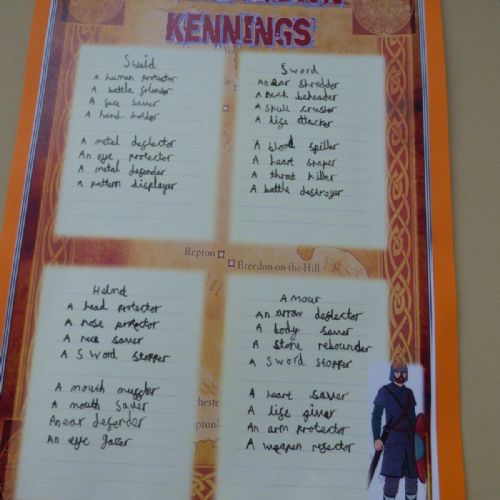 KENNINGS
Sheild
A human protector
A battle
A face saver
A hand holder
A metal deflector
An eye protector
A metal defender
A pattern displayer
Sword
An ear shredder
A neck beheader
A skull crusher
A life attacker
A blood spiller
A heart
A throt killer
A battle destroyer
Repton
Breedon-on-the-Hill
Helmet
A head protector
A nose protector
A neck saver
A sword stopper
A mouth muffler
A mouth saver
An ear defender
An eye
Amour
An arrow deflector
A body saver
A stone rebounder
A sword stopper
A heart saver
A life giver
An arm protector
A weapon rejector